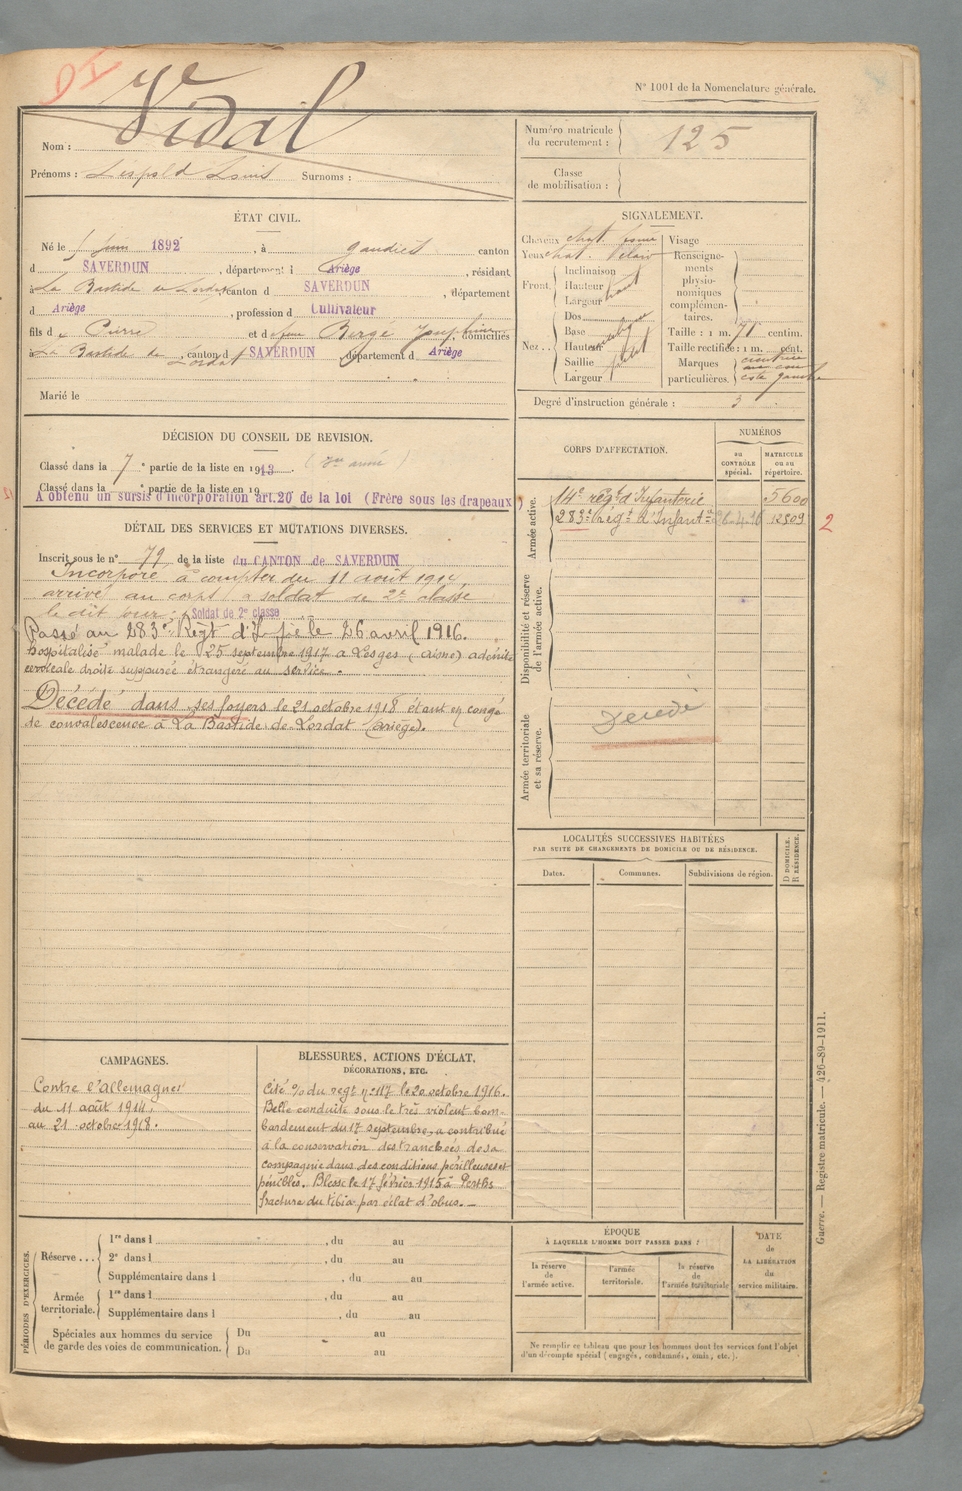 N° 1001 de la Nomenclature générale.
Vidal
Nom :
Prénoms : Léopold Louis Surnoms :
Numéro matricule du recrutement : 125
Classe de mobilisation :
ÉTAT CIVIL.
Né le 5 juin 1892, à Gaudiès canton
d SAVERDUN, département d Ariège, résidant
à La Bastide de Lordat, canton d SAVERDUN, département
d Ariège, profession d Cultivateur
fils d e Pierre et d feue Bergé Joséphine, domiciliés
à La Bastide de Lordat, canton d SAVERDUN, département d Ariège
Marié le
SIGNALEMENT.
Cheveux chat. Visage
Yeux chat. Renseignements physionomiques complémentaires.
Front. Inclinaison
Hauteur haut
Largeur
Nez. Dos
Base
Hauteur
Saillie
Largeur
Taille : 1 m. 71 centim.
Taille rectifiée : 1 m. cent.
Marques particulières. cicatrice au cou coté gauche
Degré d'instruction générale : 3
DÉCISION DU CONSEIL DE REVISION.
Classé dans la 7e partie de la liste en 1913.
Classé dans la e partie de la liste en 19
A obtenu un sursis d'incorporation art. 20 de la loi (Frère sous les drapeaux)
DÉTAIL DES SERVICES ET MUTATIONS DIVERSES.
Inscrit sous le n° 79 de la liste du CANTON de SAVERDUN
Incorporé à compter du 11 août 1914,
arrivé au corps soldat de 2e classe
le dit jour. Soldat de 2e classe
Passé au 283e Régt d'Ie le 26 avril 1916.
Hospitalisé malade le 25 septembre 1917 à Lesges (Aisne) adénite
cervicale droite suppurée étrangère au service.
Décédé dans ses foyers le 21 octobre 1918 étant en congé
de convalescence à La Bastide de Lordat (Ariège).
CORPS D'AFFECTATION.
NUMÉROS
au CONTRÔLE spécial.
MATRICULE ou au répertoire.
Armée active.
14e régt d'Infanterie 5600
283e régt d'Infantie 26-4-16 12509
2
Disponibilité et réserve de l'armée active.
Armée territoriale et sa réserve.
Décédé
LOCALITÉS SUCCESSIVES HABITÉES
PAR SUITE DE CHANGEMENTS DE DOMICILE OU DE RÉSIDENCE.
D DOMICILE. R RÉSIDENCE.
Dates. Communes. Subdivisions de région.
CAMPAGNES.
Contre l'Allemagne
du 11 août 1914,
au 21 octobre 1918.
BLESSURES, ACTIONS D'ÉCLAT,
DÉCORATIONS, ETC.
Cité % du régt n° 117 le 20 octobre 1916.
Belle conduite sous le très violent bom-
bardement du 17 septembre, a contribué
à la conservation des tranchées de sa
compagnie dans des conditions périlleuses et
pénibles. Blessé le 17 février 1915 à Perthes
fracture du tibia par éclat d'obus.
PÉRIODES D'EXERCICES.
Réserve... 1re dans l , du au
2e dans l , du au
Supplémentaire dans l , du au
Armée territoriale. 1re dans l , du au
Supplémentaire dans l , du au
Spéciales aux hommes du service de garde des voies de communication. Du au
Du au
ÉPOQUE
À LAQUELLE L'HOMME DOIT PASSER DANS :
la réserve de l'armée active.
l'armée territoriale.
la réserve de l'armée territoriale
DATE de LA LIBÉRATION du service militaire.
Ne remplir ce tableau que pour les hommes dont les services font l'objet
d'un décompte spécial (engagés, condamnés, omis, etc.).
Guerre. — Registre matricule. — 426-89-1911.